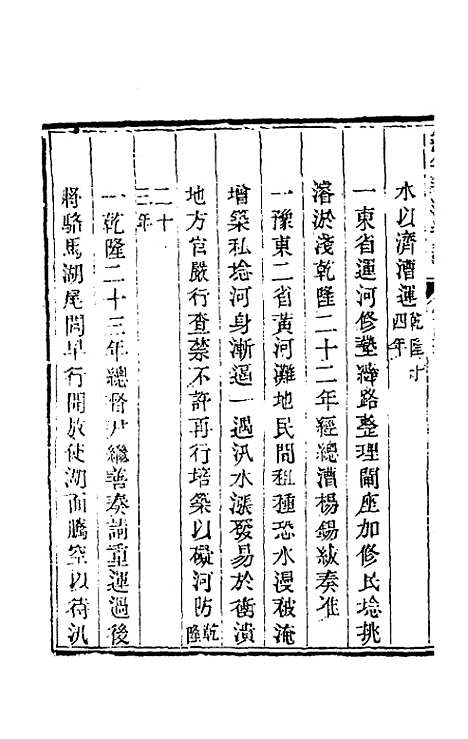 水以濟漕運乾隆十四年
一東省運河修墊縴路整理閘座加修民埝挑
溶淤淺乾隆二十二年經總漕楊錫紱奏准
一豫東二省黃河灘地民間租種恐水漫被淹
增築私埝河身漸逼一遇汛水漲發易於衝潰
地方官嚴行查禁不許再行培築以礙河防乾隆
二十三年
一乾隆二十三年總督尹繼善奏請重運過後
將駱馬湖尾閭早行開放使湖面騰空以待汛